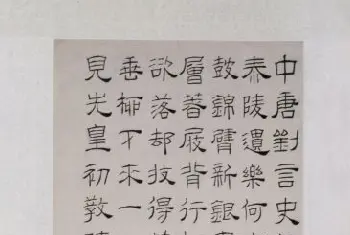 中唐劉言史
泰陵遺樂何
鼓錦臂新銀
層著屐背行
欲落却收得
垂柳下來一
見先皇初教